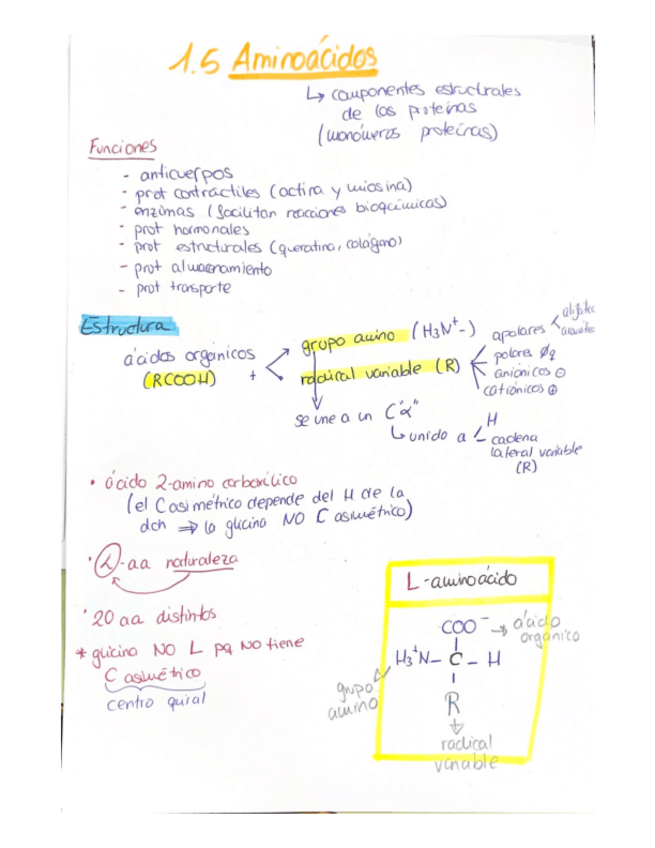 1.5 Aminoácidos
↳ componentes estructurales
de las proteinas
(monómeros proteínas)
Funciones
- anticuerpos
- prot contráctiles (actina y miosina)
- enzimas (facilitan reacciones bioquímicas)
- prot hormonales
- prot estructurales (queratina, colágeno)
- prot almacenamiento
- prot transporte
Estructura
ácidos orgánicos
(RCOOH)
+
grupo amino (H3N+-)
radical variable (R)
apolares
polares
aniónicos ⊖
catiónicos ⊕
se une a un C"α"
↳ unido a
H
cadena
lateral variable
(R)
• ácido 2-amino carboxílico
(el C asimétrico depende del H de la
dch ⇒ la glicina NO C asimétrico)
-aa naturaleza
• 20 aa distintos
* glicina NO L pq NO tiene
C asimétrico
centro quiral
L-aminoácido
COO⁻ → ácido
orgánico
H3+N - C - H
grupo
amino
R
radical
variable